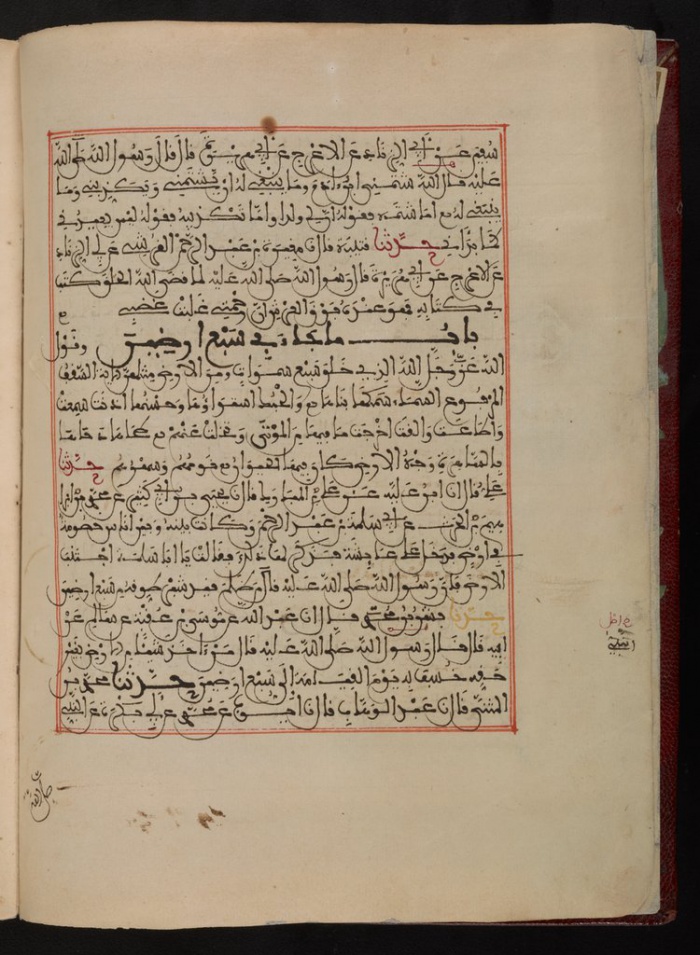 سفين عن أبي الزناد عن الاعرج عن أبي هريرة قال قال رسول الله صلى الله
عليه قال الله شتمني ابن ءادم وما ينبغي له أن يشتمني ويكذبني وما
ينبغي له اما شتمه فقوله ان لي ولدا واما تكذيبه فقوله ليس يعيدني
كما بدأني حدثنا قتيبة قال نا مغيرة بن عبد الرحمن القرشي عن أبي الزناد
عن الاعرج عن أبي هريرة قال رسول الله صلى الله عليه لما قضى الله الخلق كتب
في كتابه فهو عنده فوق العرش ان رحمتي غلبت غضبي
باب ما جاء في سبع ارضين وقول
الله عز وجل الله الذي خلق سبع سموات ومن الارض مثلهن الاية السقف
المرفوع السماء سمكها بناءها والحبك استواؤها وحسنها اذنت سمعت
واطاعت والقت اخرجت ما فيها من الموتى وتخلت عنهم طحاها دحاها
بالساهرة وجه الارض كان فيها الحيوان نومهم وسهرهم حدثنا
علي قال انا ابن علية عن علي بن المبارك قال نا يحيى بن أبي كثير عن محمد بن ابرا
هيم بن الحرث عن أبي سلمة بن عبد الرحمن وكانت بينه وبين اناس خصومة
في ارض فدخل على عايشة فذكر لها ذلك فقالت يا ابا سلمة اجتنب
الارض فان رسول الله صلى الله عليه قال من ظلم قيد شبر طوقه من سبع ارضين
حدثنا بشر بن محمد قال انا عبد الله عن موسى بن عقبة عن سالم عن
ابيه قال قال رسول الله صلى الله عليه قال من اخذ شيئا من الارض بغير
حقه خسف به يوم القيامة إلى سبع ارضين حدثنا محمد بن
المثنى قال نا عبد الوهاب قال نا ايوب عن محمد عن أبي بكرة عن النبي